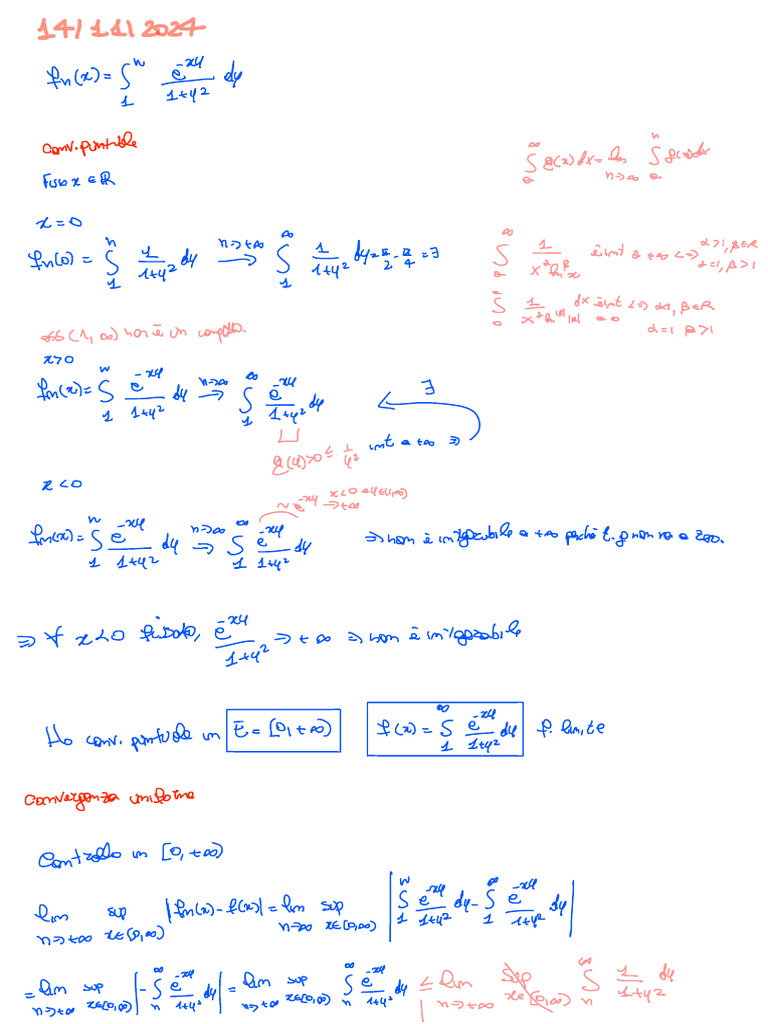 14/11/2024
fn(x) = ∫₁ⁿ e^{-xy}/(1+y²) dy
Conv. puntuale
Fisso x ∈ ℝ
∫ₐ^∞ g(x) dx = lim_{n→∞} ∫ₐⁿ g(x) dx
x = 0
fn(0) = ∫₁ⁿ 1/(1+y²) dy →^{n→+∞} ∫₁^∞ 1/(1+y²) dy = π/2 - π/4 = ∃
∫ₐ^∞ 1/(x^α ln^β x) è int a +∞ <=> α>1, β∈ℝ
α=1, β>1
(1, ∞) non è un compatto
α=1 β>1
x>0
fn(x) = ∫₁ⁿ e^{-xy}/(1+y²) dy →^{n→∞} ∫₁^∞ e^{-xy}/(1+y²) dy ∃
g(y)>0 ≤ 1/y² int a +∞ ⇒
x<0
~ e^{-xy} → +∞
fn(x) = ∫₁ⁿ e^{-xy}/(1+y²) dy ⇒^{n→∞} ∫₁^∞ e^{-xy}/(1+y²) dy ⇒ non è integrabile a +∞ perché non va a zero.
⇒ ∀ x<0 fissato, e^{-xy}/(1+y²) → +∞ ⇒ non è integrabile
Ho conv. puntuale in E = [0, +∞) f(x) = ∫₁^∞ e^{-xy}/(1+y²) dy f. limite
Convergenza uniforme
Controllo in [0, +∞)
lim_{n→+∞} sup_{x∈[0,∞)} |fn(x) - f(x)| = lim_{n→∞} sup_{x∈[0,∞)} |∫₁ⁿ e^{-xy}/(1+y²) dy - ∫₁^∞ e^{-xy}/(1+y²) dy|
= lim_{n→+∞} sup_{x∈[0,∞)} |-∫ₙ^∞ e^{-xy}/(1+y²) dy| = lim_{n→+∞} sup_{x∈[0,∞)} ∫ₙ^∞ e^{-xy}/(1+y²) dy ≤ lim_{n→+∞} sup_{x∈[0,∞)} ∫ₙ^∞ 1/(1+y²) dy